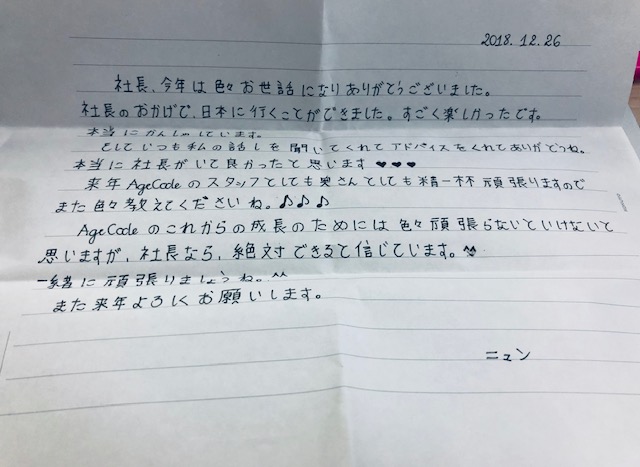 2018.12.26
社長、今年は色々お世話になりありがとうございました。
社長のおかげで、日本に行くことができました。すごく楽しかったです。
本当にかんしゃしています。
そしていつも私の話しを聞いてくれてアドバイスをくれてありがとうね。
本当に社長がいて良かったと思います♥♥♥
来年AgeCodeのスタッフとしても奥さんとしても精一杯頑張りますので
また色々教えてくださいね。♪♪♪
AgeCodeのこれからの成長のためには色々頑張らないといけないと
思いますが、社長なら、絶対できると信じています。^^
一緒に頑張りましょうね。^^
また来年よろしくお願いします。
ニュン